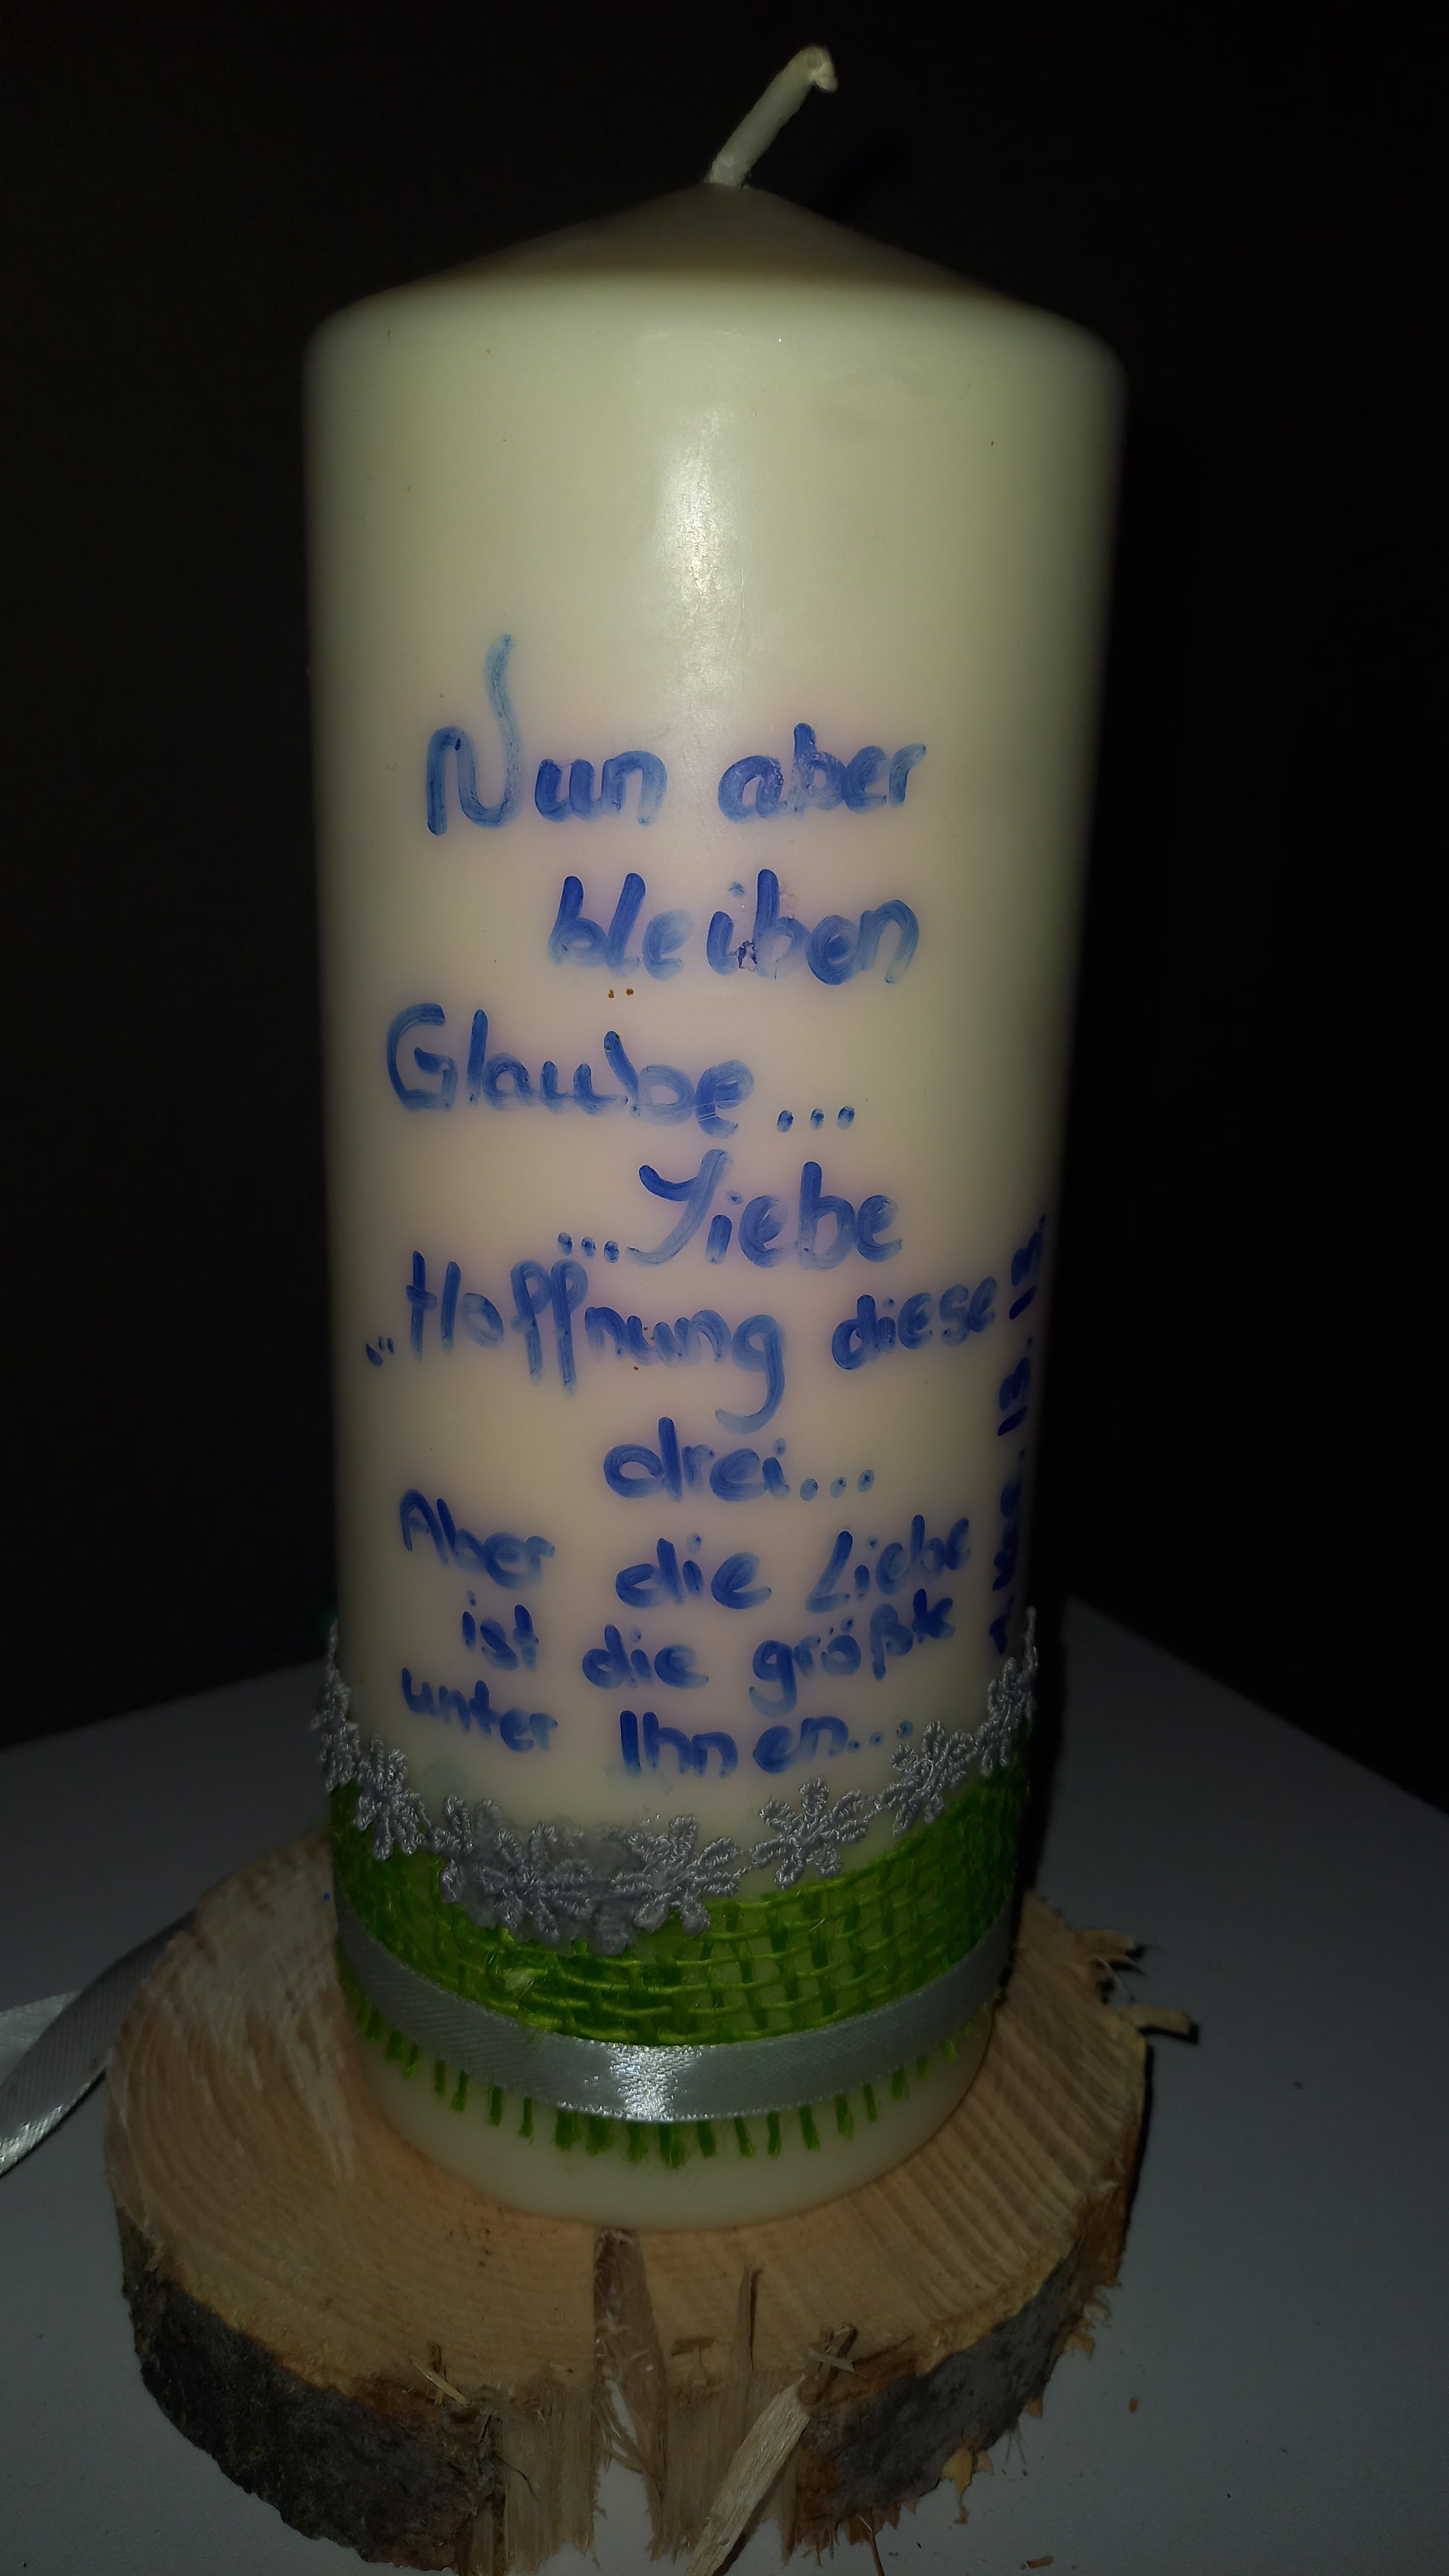 Nun aber
bleiben
Glaube...
...Liebe
...Hoffnung diese
drei...
Aber die Liebe
ist die größte
unter Ihnen...
13. 13